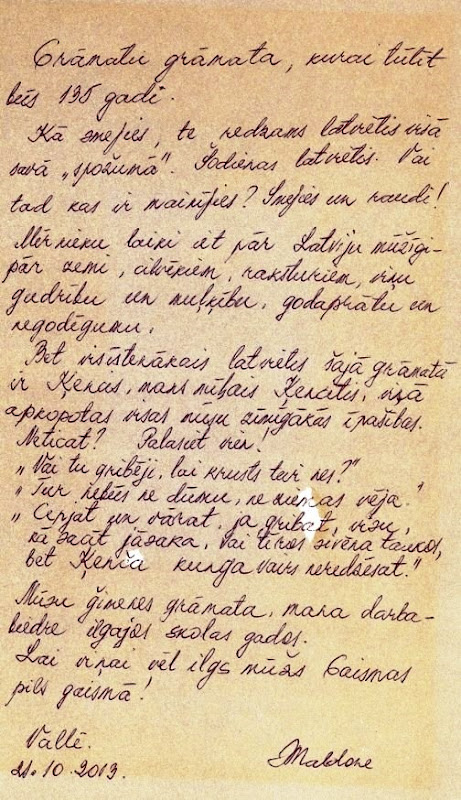 Grāmatu grāmata, kurai tūlīt
būs 135 gadi.
Kā smejies, te redzams latvietis visā
savā „spožumā". Šodienas latvietis. Vai
tad kas ir mainījies? Smejies un raudi!
Mērnieku laiki iet pār Latviju mūžīgi-
pār zemi, cilvēkiem, raksturiem, viņu
gudrību un muļķību, godaprātu un
negodīgumu.
Bet visīstenākais latvietis šajā grāmatā
ir Ķenčs, mans mīļais Ķencītis, viņā
apkopotas visas mūsu zīmīgākās īpašības.
Neticat? Palasiet vien!
„Vai tu gribēji, lai krusts tevi nes?"
„Tur nebūs ne dūmu, ne vēja."
„Cepjat un vārat, ja gribat, visu,
kā sacīt jāsaka, vai tīros sivēna taukos,
bet Ķenča kunga vairs neredzēsat."
Mūsu ģimenes grāmata, mana darba-
biedre ilgajos skolas gados.
Lai viņai vēl ilgs mūžs Gaismas
pils gaismā!
Vallē.
21.10.2013.